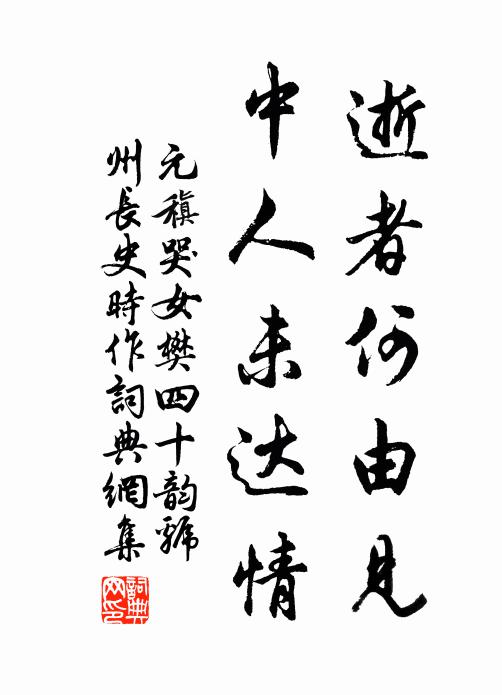 逝者何由见
中人未达情
元稹哭女樊四十韵虢
州長史時作詞典網集
詞典
网印